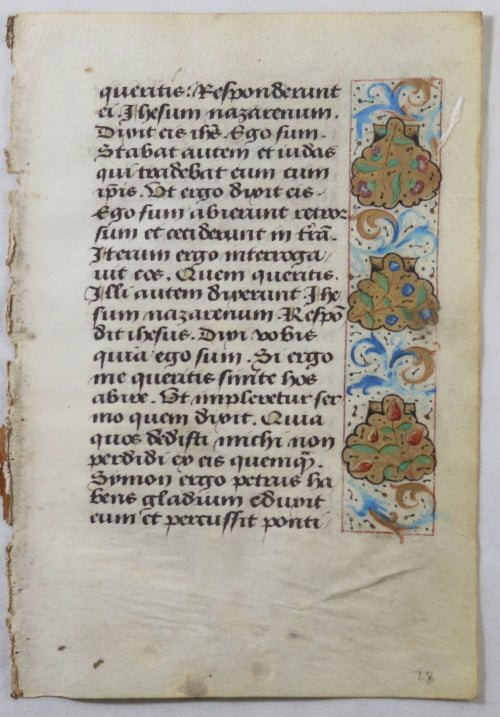 queritis: Responderunt
ei. Jhesum nazarenum.
Dixit eis ihs̄. Ego sum.
Stabat autem et iudas
qui tradebat eum cum
ip̄is. Vt ergo dixit eis.
Ego sum abierunt retror
sum et ceciderunt in t̄rā.
Iterum ergo interroga
uit eos. Quem queritis.
Illi autem dixerunt Ihe
sum nazarenum. Respō
dit ihesus. Dixi vobis
quia ego sum. Si ergo
me queritis sinite hos
abire. Vt impleretur ser
mo quem dixit. Quia
quos dedisti michi non
perdidi ex eis quemq̄.
Symon ergo petrus ha
bens gladium eduxit
eum et percussit ponti
28